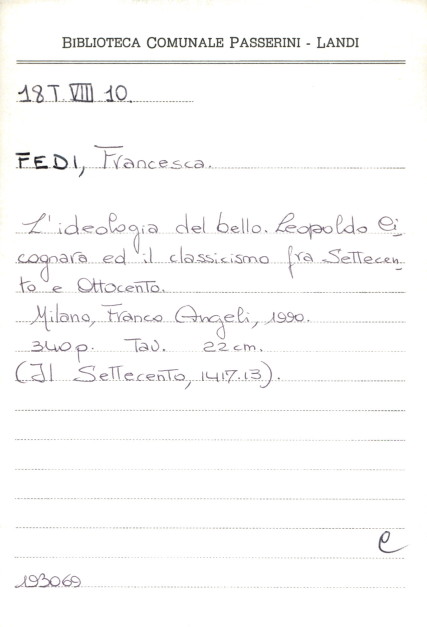 BIBLIOTECA COMUNALE PASSERINI - LANDI
18 T. VIII 10.
FEDI, Francesca.
L'ideologia del bello. Leopoldo Ci-
cognara ed il classicismo fra Settecen-
to e Ottocento.
Milano, Franco Angeli, 1990.
340 p. Tav. 22 cm.
(Il Settecento, 1417.13).
C
193069